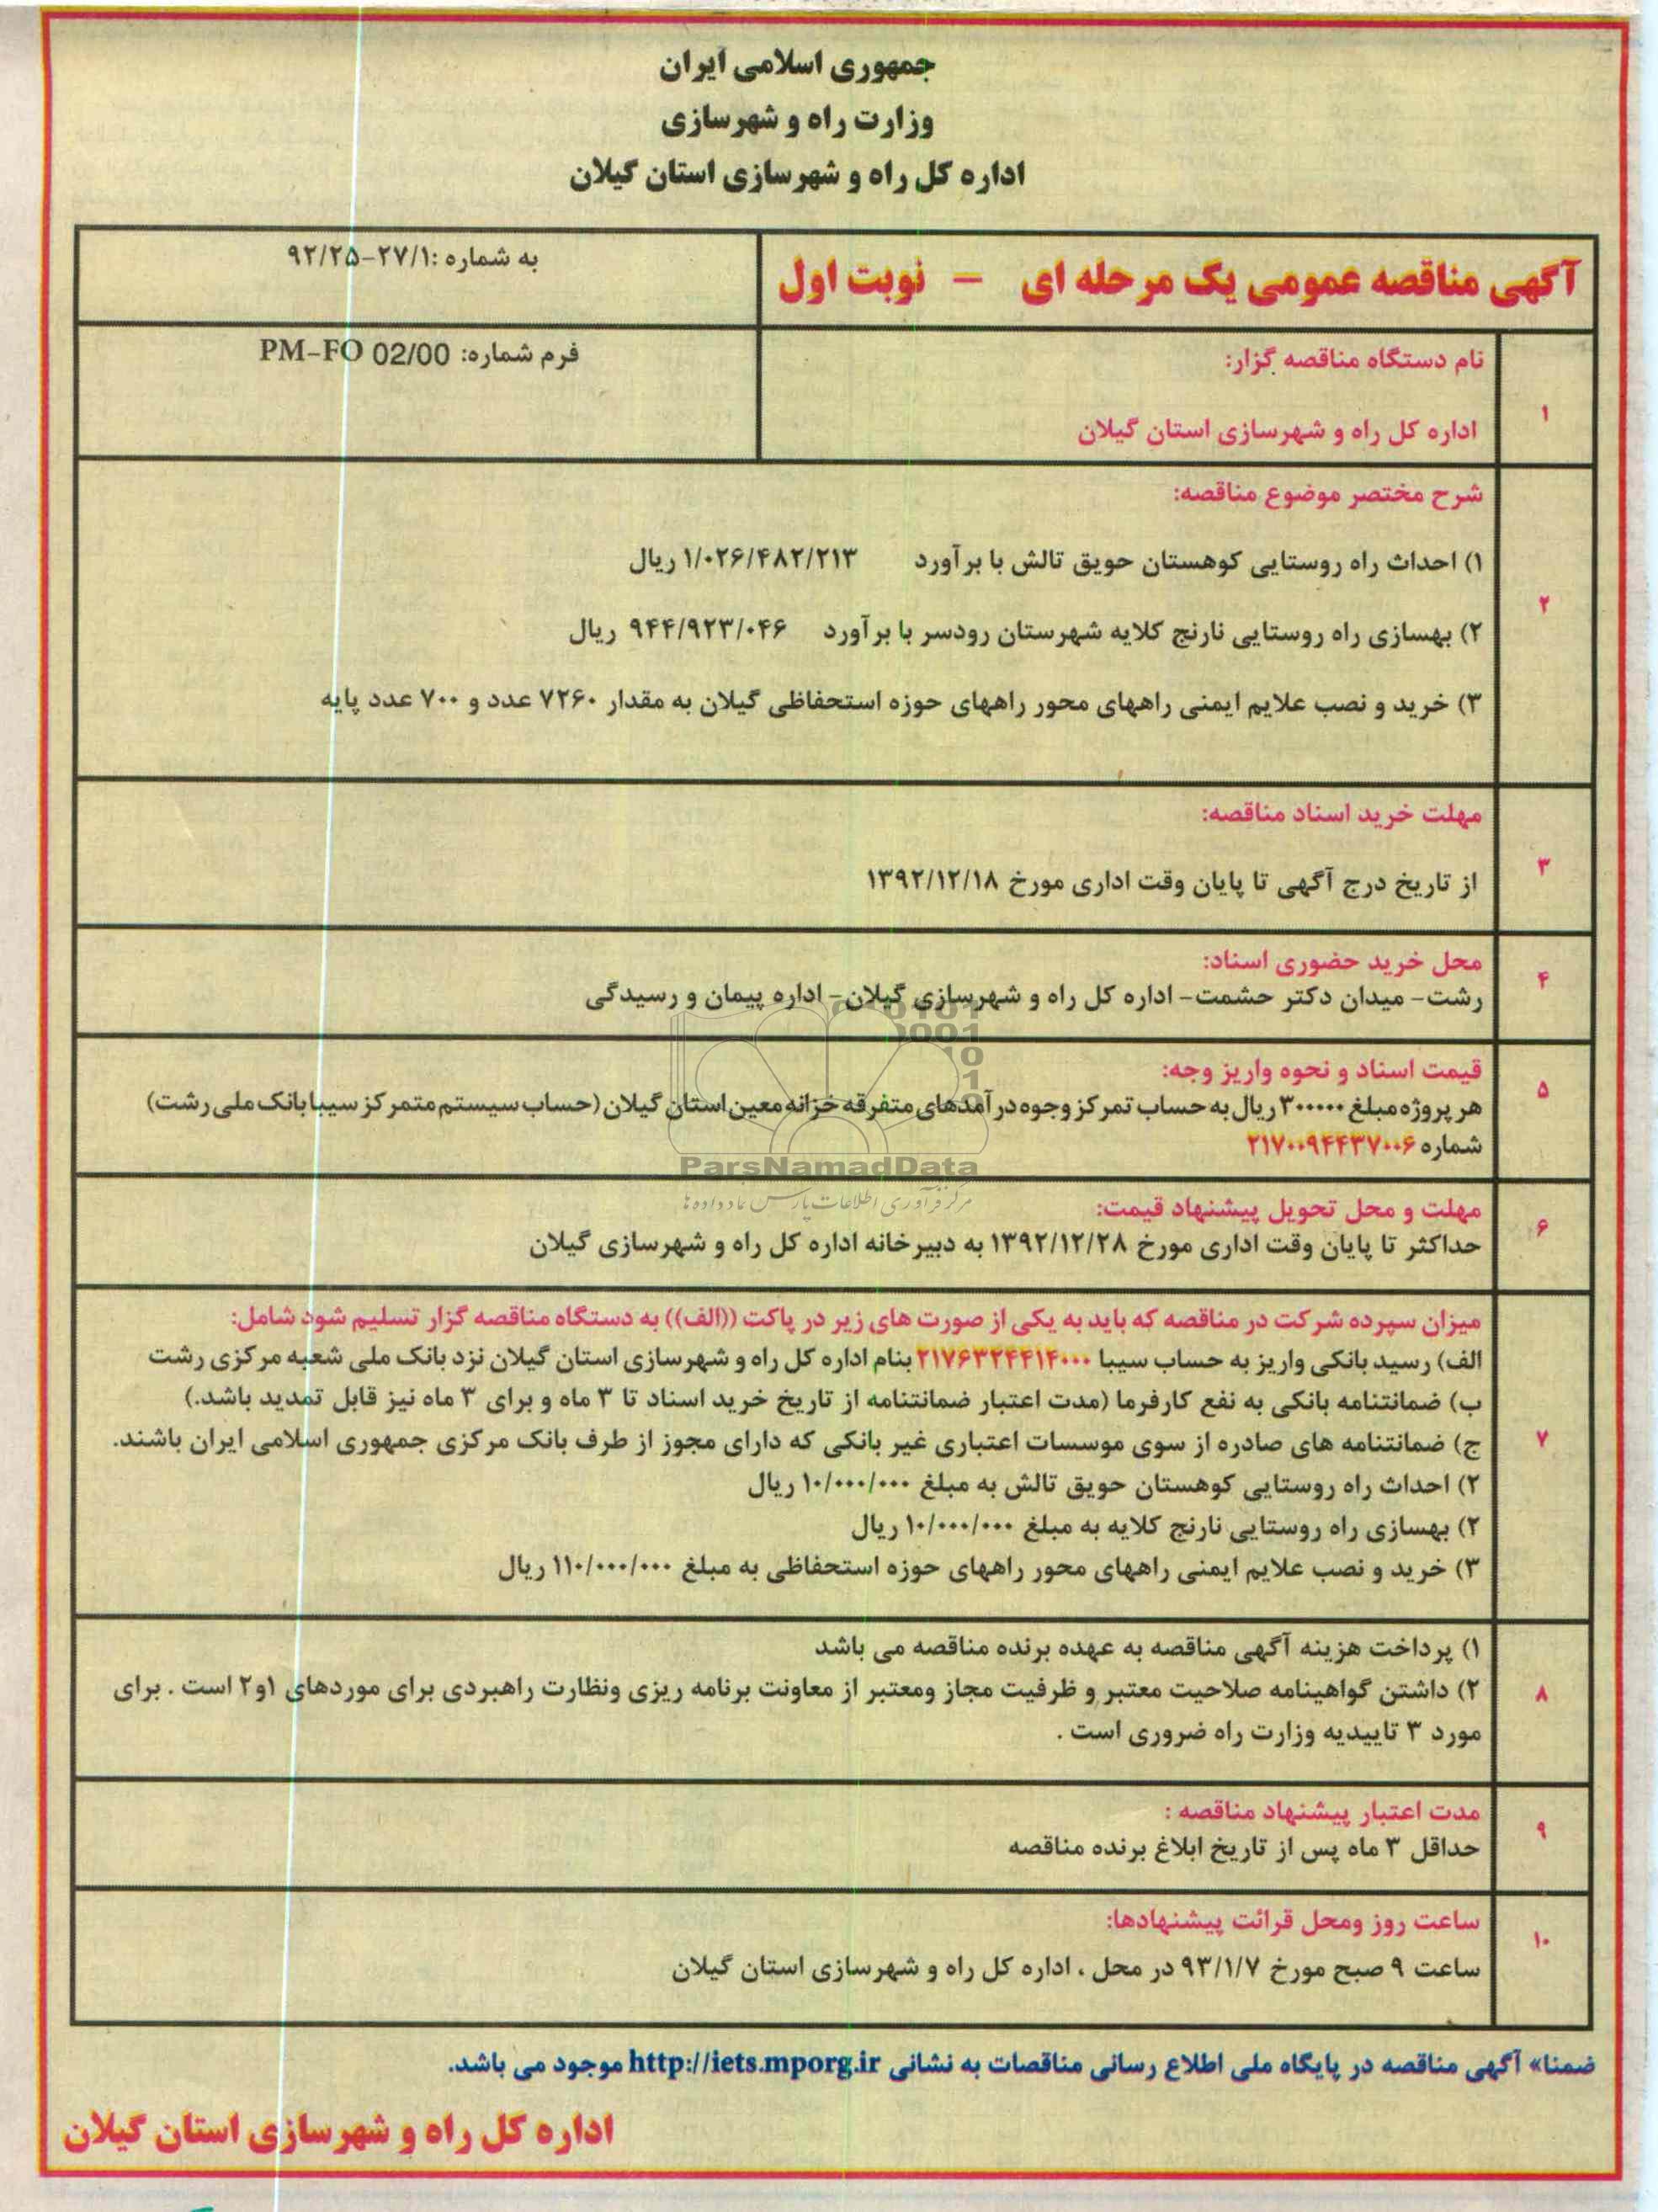 جمهوری اسلامی ایران
وزارت راه و شهرسازی
اداره کل راه و شهرسازی استان گیلان
آگهی مناقصه عمومی یک مرحله ای – نوبت اول
به شماره :۲۷/۱-۹۲/۲۵
۱
نام دستگاه مناقصه گزار:
اداره کل راه و شهرسازی استان گیلان
فرم شماره: PM-FO 02/00
۲
شرح مختصر موضوع مناقصه:
۱) احداث راه روستایی کوهستان حویق تالش با برآورد ۱/۰۲۶/۴۸۲/۲۱۳ ریال
۲) بهسازی راه روستایی نارنج کلایه شهرستان رودسر با برآورد ۹۴۴/۹۲۳/۰۴۶ ریال
۳) خرید و نصب علایم ایمنی راههای محور راههای حوزه استحفاظی گیلان به مقدار ۷۲۶۰ عدد و ۷۰۰ عدد پایه
۳
مهلت خرید اسناد مناقصه:
از تاریخ درج آگهی تا پایان وقت اداری مورخ ۱۳۹۲/۱۲/۱۸
۴
محل خرید حضوری اسناد:
رشت- میدان دکتر حشمت- اداره کل راه و شهرسازی گیلان- اداره پیمان و رسیدگی
۵
قیمت اسناد و نحوه واریز وجه:
هر پروژه مبلغ ۳۰۰۰۰۰ ریال به حساب تمرکز وجوه در آمدهای متفرقه خزانه معین استان گیلان (حساب سیستم متمرکز سیبا بانک ملی رشت)
شماره ۲۱۷۰۰۹۴۴۳۷۰۰۶
ParsNamadData
مرکز فرآوری اطلاعات پارس نماد داده ها
۶
مهلت و محل تحویل پیشنهاد قیمت:
حداکثر تا پایان وقت اداری مورخ ۱۳۹۲/۱۲/۲۸ به دبیرخانه اداره کل راه و شهرسازی گیلان
۷
میزان سپرده شرکت در مناقصه که باید به یکی از صورت های زیر در پاکت ((الف)) به دستگاه مناقصه گزار تسلیم شود شامل:
الف) رسید بانکی واریز به حساب سیبا ۲۱۷۶۳۲۴۴۱۴۰۰۰ بنام اداره کل راه و شهرسازی استان گیلان نزد بانک ملی شعبه مرکزی رشت
ب) ضمانتنامه بانکی به نفع کارفرما (مدت اعتبار ضمانتنامه از تاریخ خرید اسناد تا ۳ ماه و برای ۳ ماه نیز قابل تمدید باشد.)
ج) ضمانتنامه های صادره از سوی موسسات اعتباری غیر بانکی که دارای مجوز از طرف بانک مرکزی جمهوری اسلامی ایران باشند.
۲) احداث راه روستایی کوهستان حویق تالش به مبلغ ۱۰/۰۰۰/۰۰۰ ریال
۲) بهسازی راه روستایی نارنج کلایه به مبلغ ۱۰/۰۰۰/۰۰۰ ریال
۳) خرید و نصب علایم ایمنی راههای محور راههای حوزه استحفاظی به مبلغ ۱۱۰/۰۰۰/۰۰۰ ریال
۸
۱) پرداخت هزینه آگهی مناقصه به عهده برنده مناقصه می باشد
۲) داشتن گواهینامه صلاحیت معتبر و ظرفیت مجاز ومعتبر از معاونت برنامه ریزی ونظارت راهبردی برای موردهای ۱و۲ است . برای
مورد ۳ تاییدیه وزارت راه ضروری است .
۹
مدت اعتبار پیشنهاد مناقصه :
حداقل ۳ ماه پس از تاریخ ابلاغ برنده مناقصه
۱۰
ساعت روز ومحل قرائت پیشنهادها:
ساعت ۹ صبح مورخ ۹۳/۱/۷ در محل ، اداره کل راه و شهرسازی استان گیلان
ضمنا» آگهی مناقصه در پایگاه ملی اطلاع رسانی مناقصات به نشانی http://iets.mporg.ir موجود می باشد.
اداره کل راه و شهرسازی استان گیلان